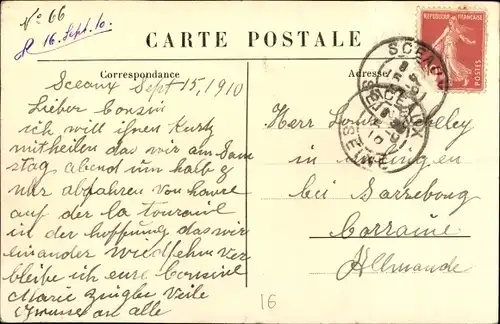 No 66
R 16. Sept. 10.
CARTE POSTALE
Correspondance
Adresse
REPUBLIQUE FRANÇAISE
POSTES
SCEAUX
Sceaux Sept 15, 1910
Lieber Consin
ich will ihnen Kurtz
mittheilen das wir am Sams
stag abend um halb 9
Uhr abfahren von
auf der la touraine
in der hoffnung das wir
einander wiedsehen ver
bleibe ich eure Consine
Marie Zingler Veile
Grussel an alle
Herr Louis
in
bei Sarrebourg
Lorraine
Allemande
16